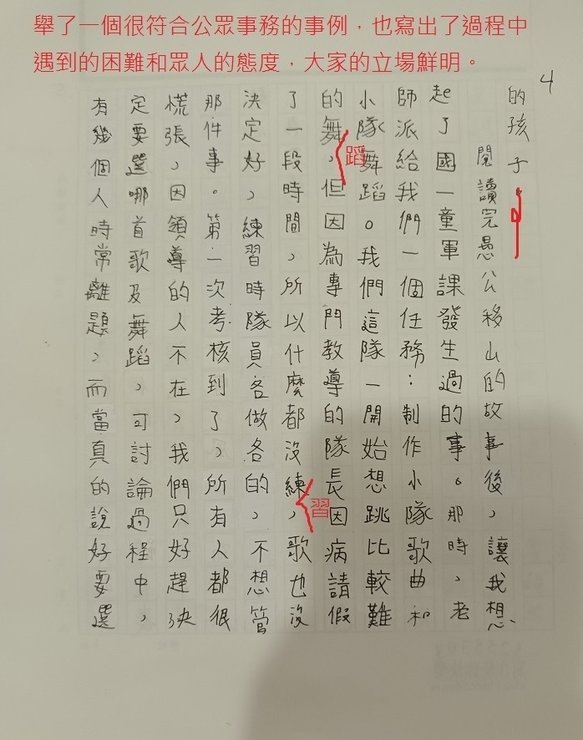 舉了一個很符合公眾事務的事例，也寫出了過程中
遇到的困難和眾人的態度，大家的立場鮮明。
4
的孩子。
閱讀完愚公移山的故事後，讓我想
起了國一童軍課發生過的事。那時，老
師派給我們一個任務：制作小隊歌曲和
小隊舞蹈。我們這隊一開始想跳比較難
的舞，但因為專門教導的隊長因病請假
蹈
了一段時間，所以什麼都沒練，歌也沒
習
決定好，練習時隊員各做各的，不想管
那件事。第一次考核到了，所有人都很
慌張，因領導的人不在，我們只好趕決
定要選哪首歌及舞蹈，可討論過程中，
有幾個人時常離題，而當真的說好要選